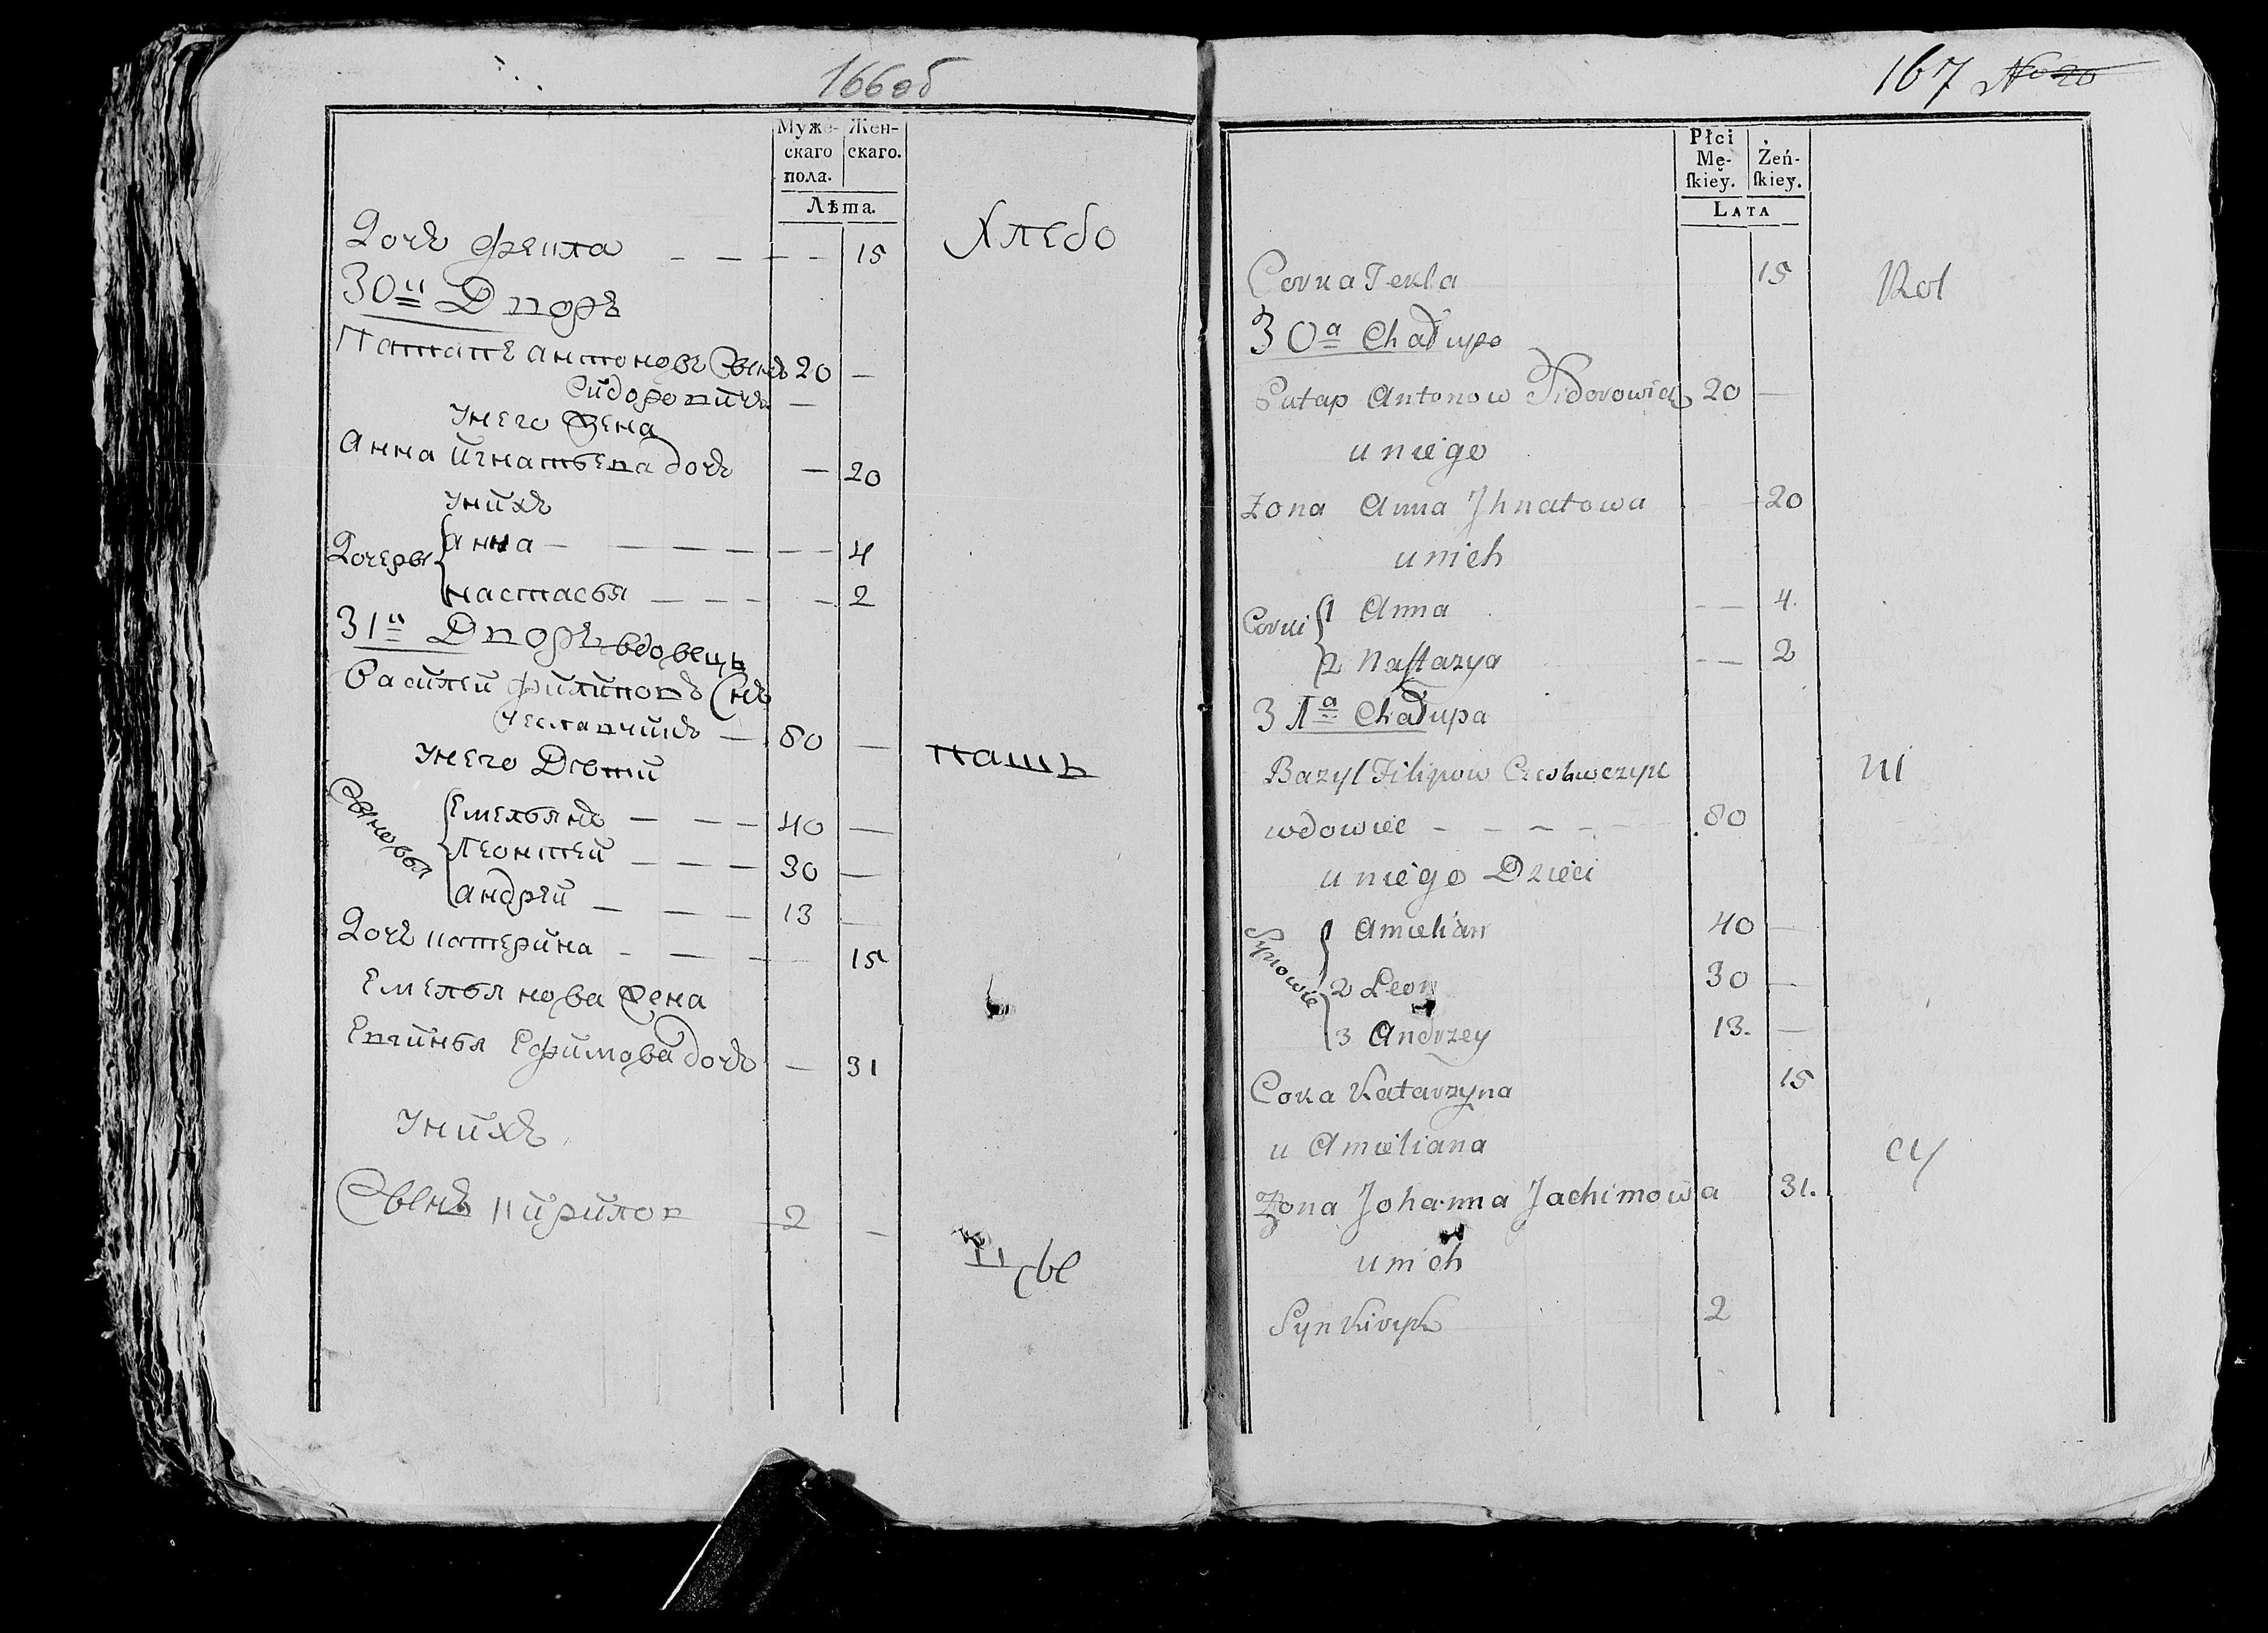 166об
Муже- Жен-
скаго скаго.
пола.
Лѣта.
Дочь Фекла — — — — 15 Хлебо
30й Дворъ
Патапъ антоновъ Сынъ 20 —
Сидоровичъ —
Унего Жена
Анна Игнатьева дочь — 20
Унихъ
Дочеры
анна — — — — — — 4
настасья — — — — 2
31й Дворъ вдовецъ
Василей филиповъ Снъ
80 —
Унего Дѣти пашъ
Сыновья
Емельянъ — — — 40 —
Леонтей — — — 30 —
андрей — — — 13 —
Дочь катерина — — — 15
Емельянова Жена
Евгинья Ефимова дочь — 31
Унихъ
Сынъ кирилов 2 —
цы
167 No 20
Płci Żeń-
Mę- ſkiey.
ſkiey.
LATA
Corka Tekla 15 Rol
30a Chałupa
Patap Antonow Sidorowicz 20 —
u niego
Żona Anna Jhnatowa — 20
u nich
Corki
1 Anna — — 4.
2 Naſtazya — — 2
31a Chałupa
Bazyl Filipow ni
wdowiec — — — — — 80
u niego Dzieci
Synowie
1 Amielian 40 —
2 Leon 30 —
3 Andrzey 13. —
Coka Katarzyna 15
u Amieliana cy
Żona Johanna Jachimowa 31.
u nich
Syn Kiryk 2